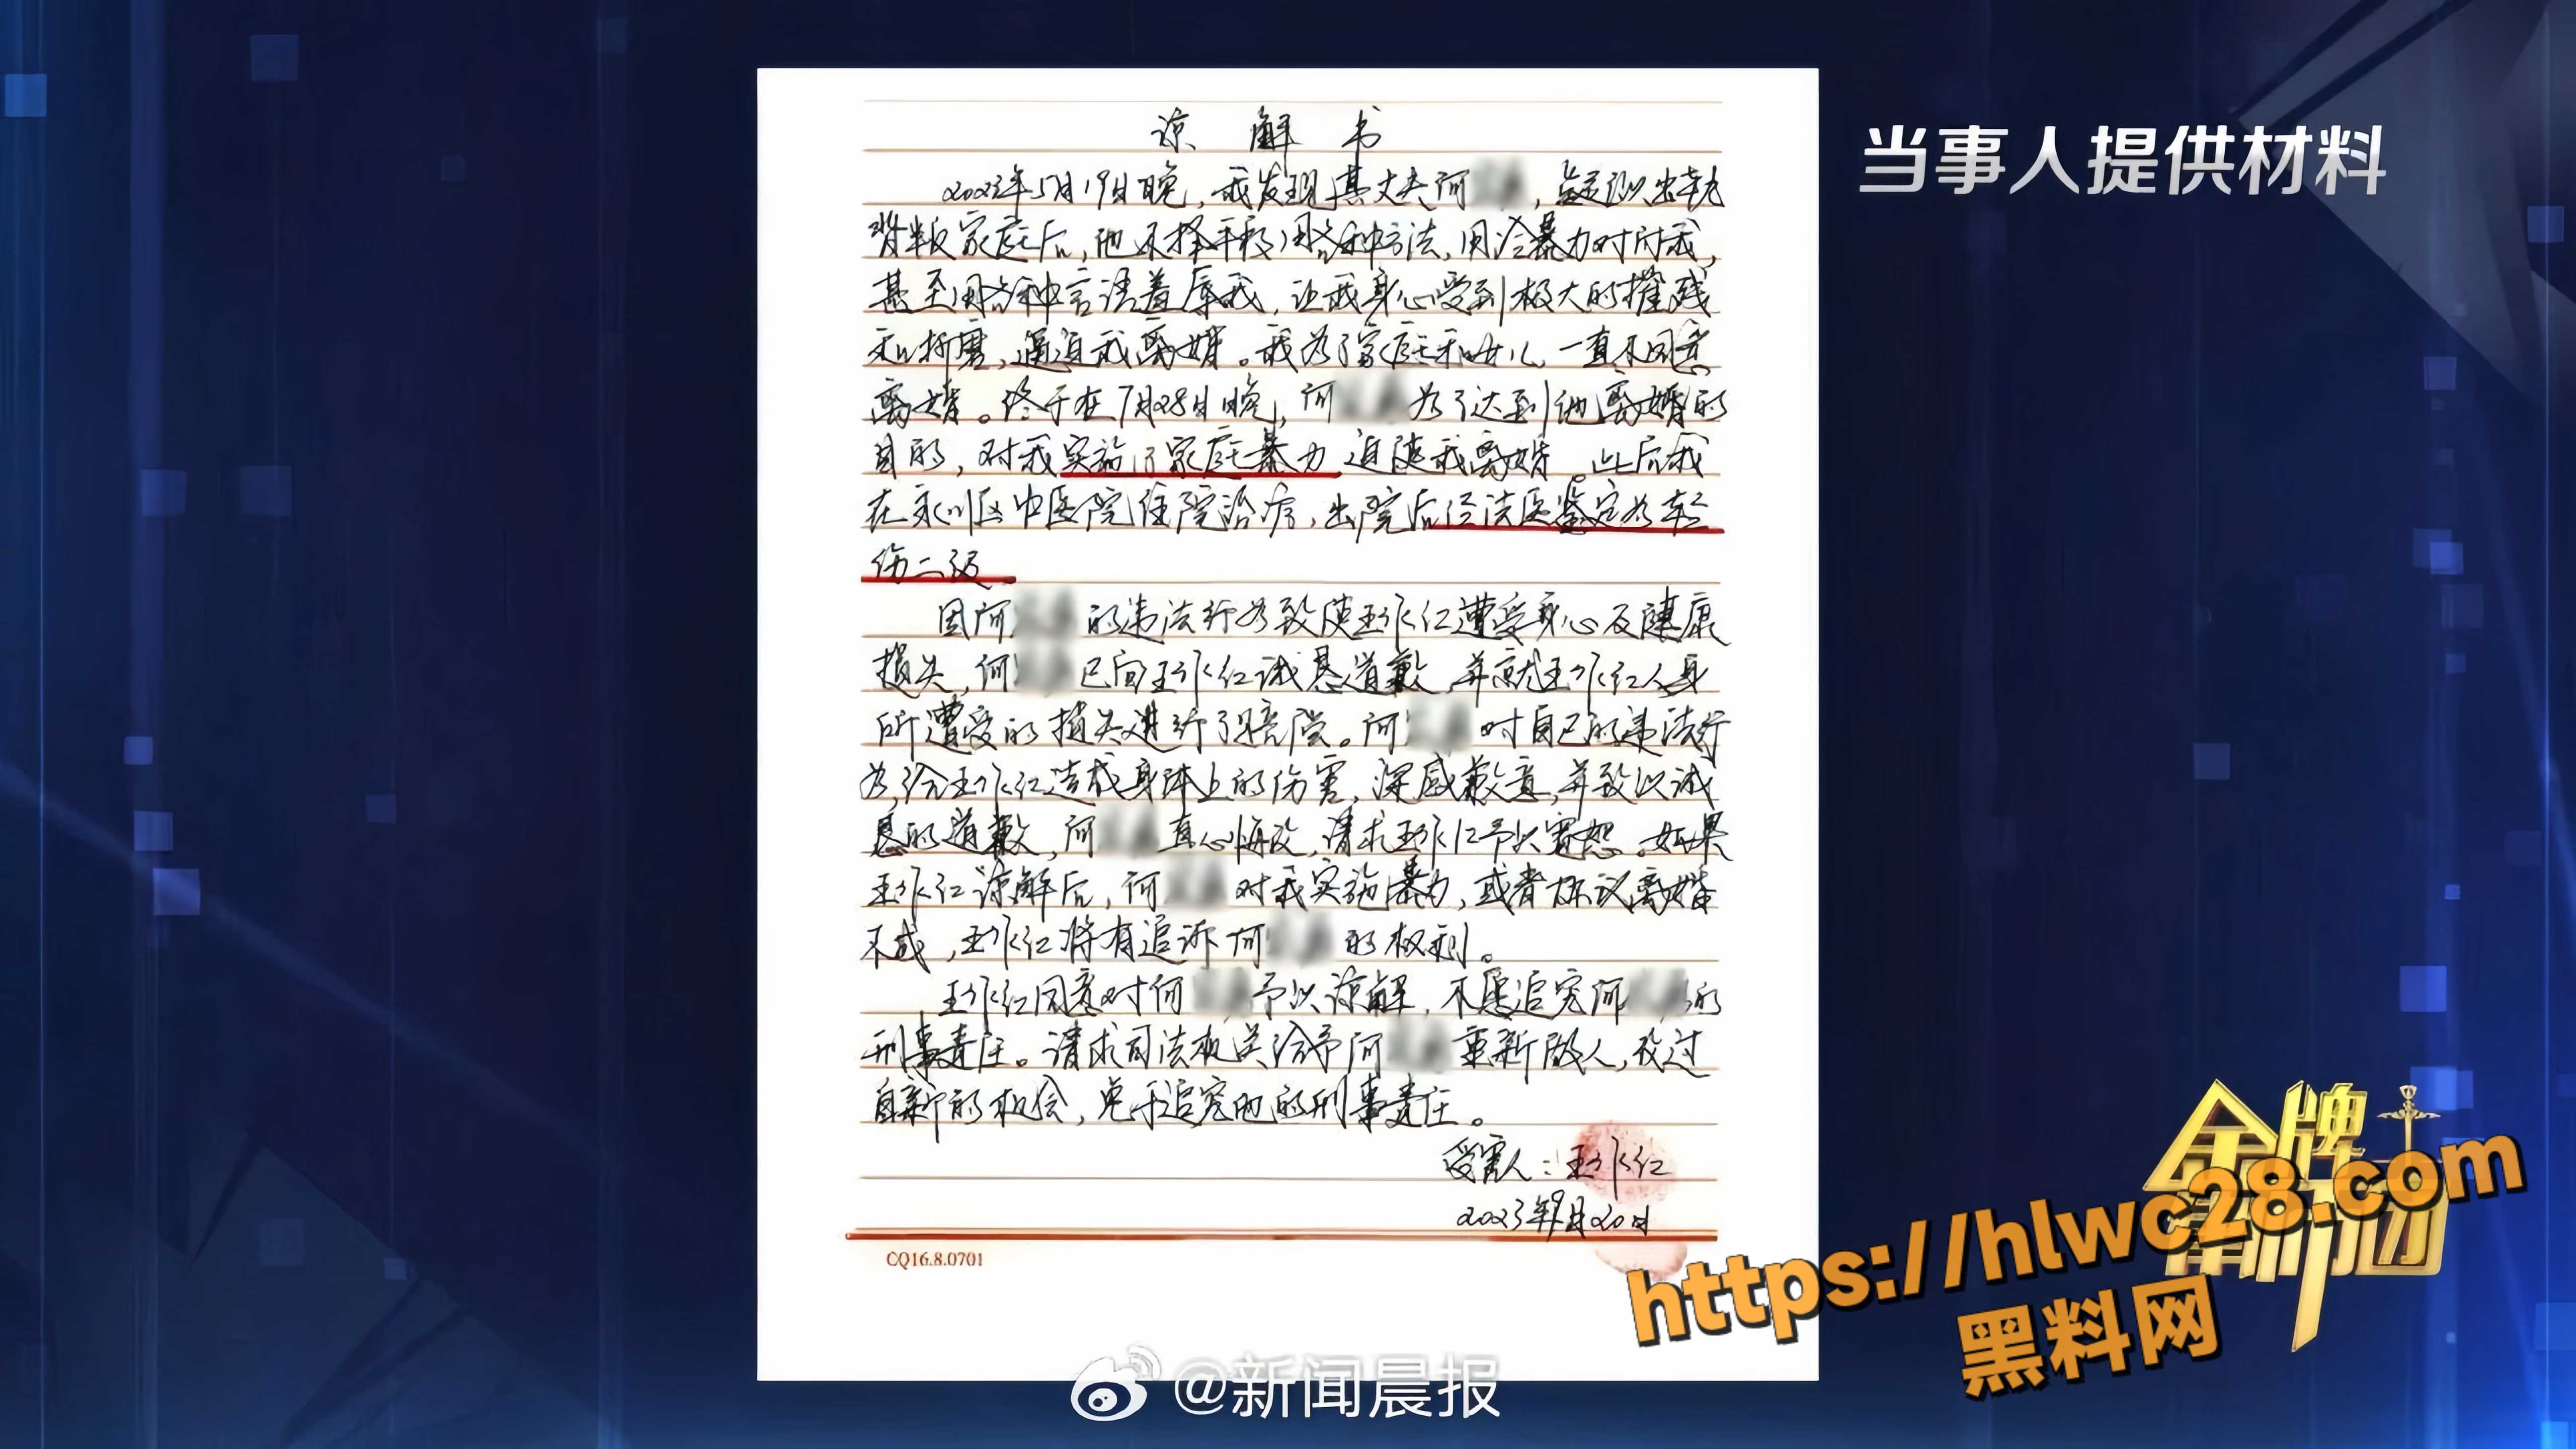 当事人提供材料
谅解书
2023年5月19日晚，我发现其丈夫何，出轨
背叛家庭后，他不择手段用各种方法，用冷暴力对付我，
甚至用各种言语羞辱我，让我身心受到极大的摧残
和折磨，逼迫我离婚。我为了家庭和女儿，一直不同意
离婚。终于在7月28日晚，何为了达到他离婚的
目的，对我实施了家庭暴力迫使我离婚。此后我
在永川区中医院住院治疗，出院后经法医鉴定为轻
伤二级
因何的违法行为致使王永红遭受身心及健康
损失，何已向王永红诚恳道歉，并就王永红人身
所遭受的损失进行了赔偿。何对自己的违法行
为，给王永红造成身体上的伤害，深感歉意，并致以诚
恳的道歉，何真心悔改，请求王永红予以宽恕。如果
王永红谅解后，何对我实施暴力，或者协议离婚
不成，王永红将有追诉何的权利。
王永红同意对何予以谅解，不愿追究何的
刑事责任。请求司法机关给予何重新做人，改过
自新的机会，免于追究他的刑事责任。
受害人：王永红
2023年9月20日
CQ16.8.0701
金牌
https://hlwc28.com
黑料网
@新闻晨报